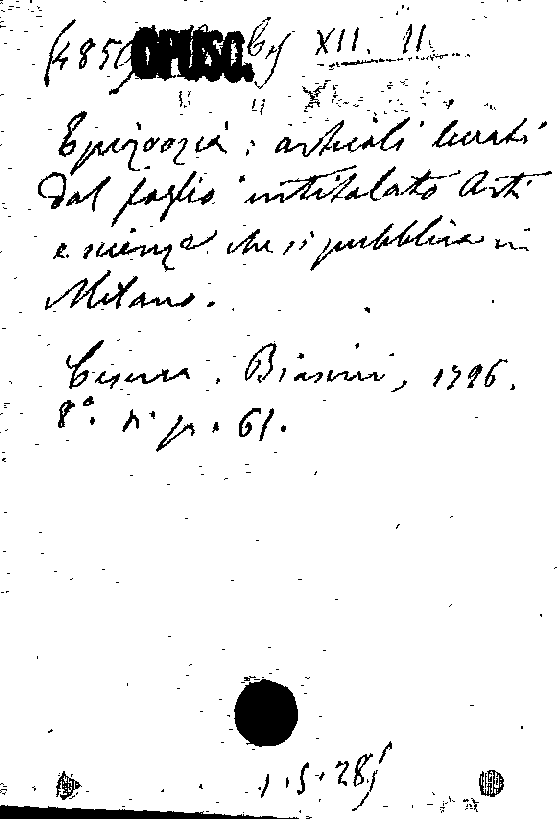 (485) OPUSC. XII. 11.
" " X
Epizoozia : articoli levati
dal foglio intitolato Arti
e scienze che si pubblica in
Milano.
Cesena. Biasini, 1796.
8°. n. p. 61.
1.5.285